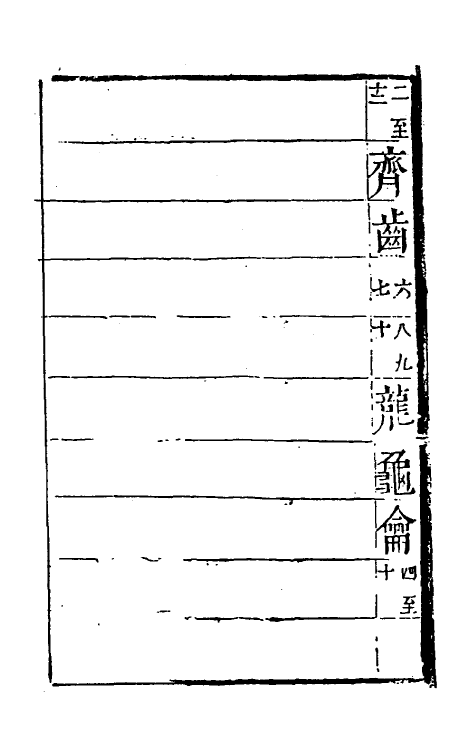 二至十二齊齒六七八九十龍龜龠四至十